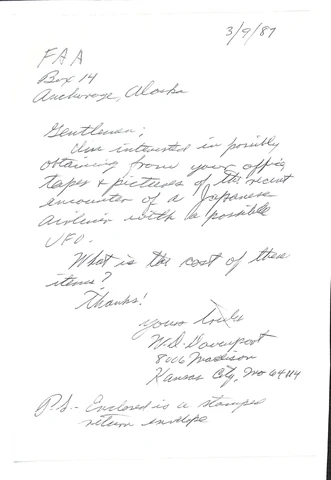 3/9/87
FAA
Box 14
Anchorage, Alaska
Gentlemen:
I'm interested in possibly
obtaining from your office
tapes & pictures of the recent
encounter of a Japanese
airliner with a possible
UFO.
What is the cost of these
items?
Thanks!
Yours truly
W.D. Davenport
8006 Madison
Kansas City, Mo 64114
P.S. - Enclosed is a stamped
return envelope